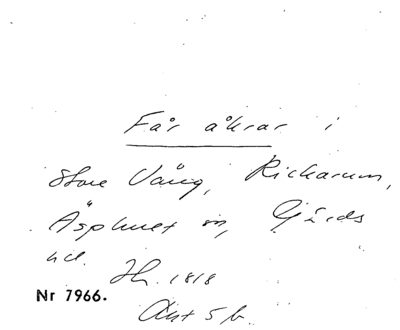 Får åkrar i
Store Vång, Rickarum,
Äsphult sn, Gärds
hd. Jh. 1818
Nr 7966.
Akt 5 b